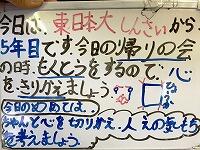 今日は、東日本大しんさいから、
5年目です。今日の帰りの会
の時、もくとうをするので、心
をきりかえましょう。
今日のめあては、
ちゃんと心をきりかえ、人の気もち
を考えましょう。